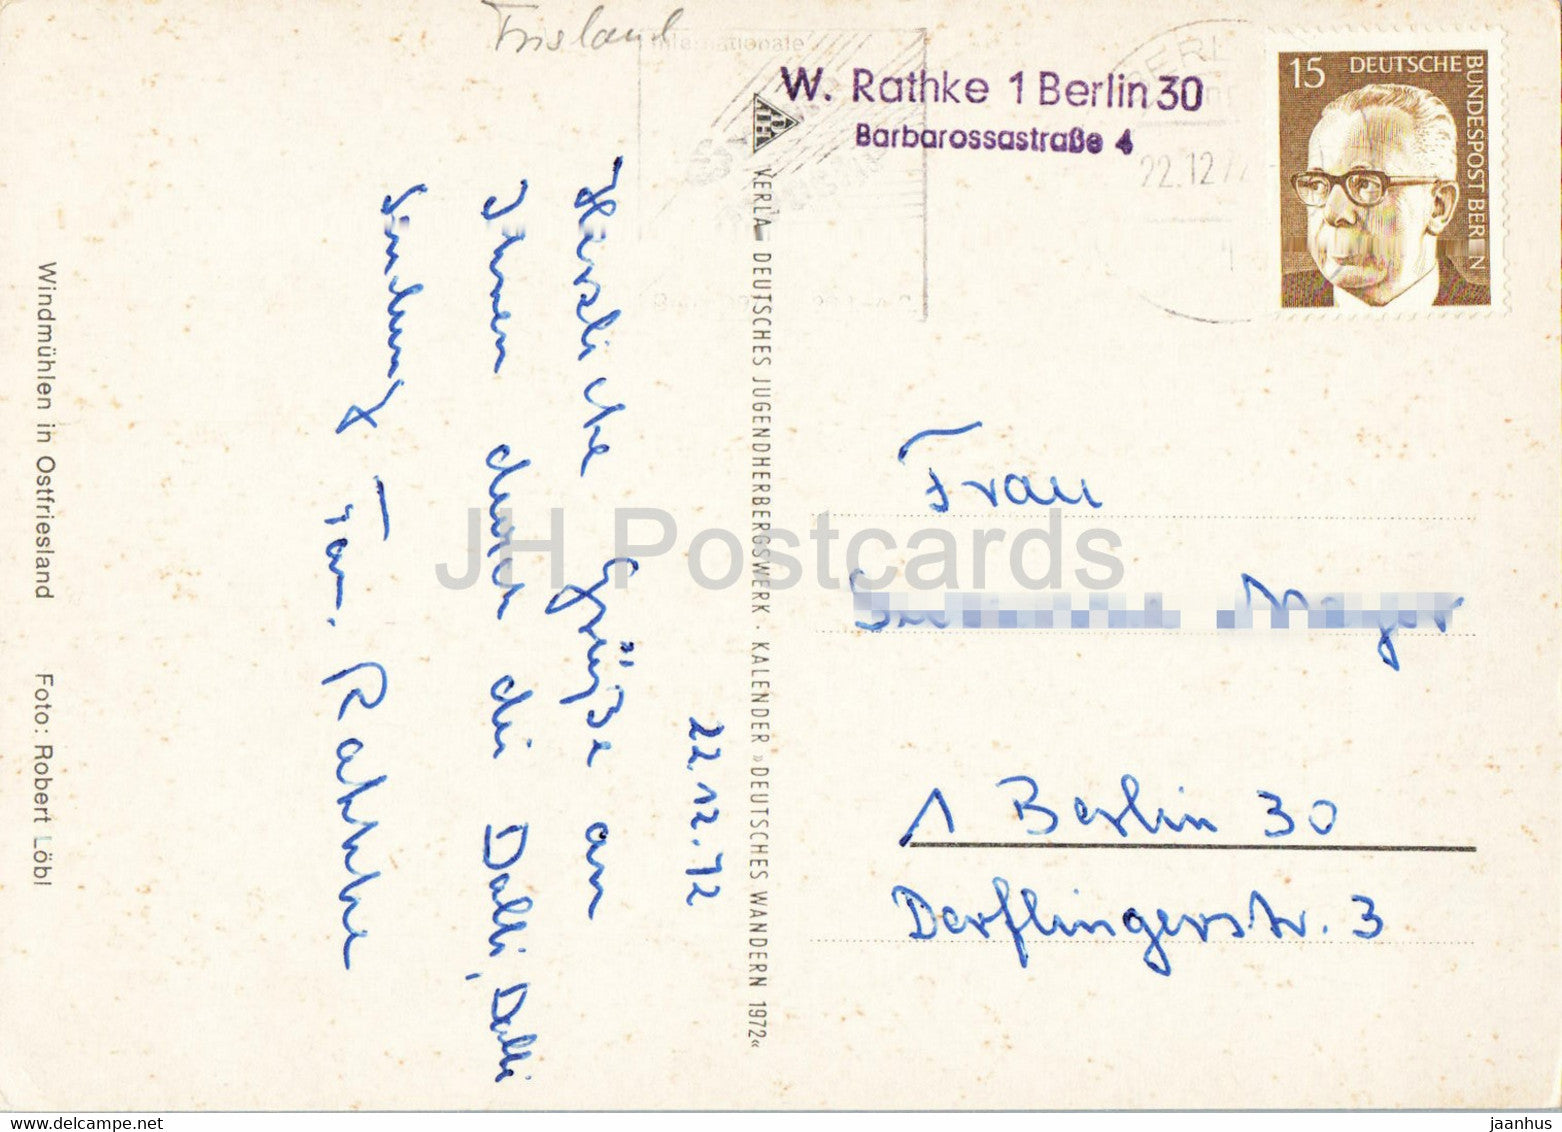 Frisland
Internationale
W. Rathke 1 Berlin 30
Barbarossastraße 4
BERLIN
22.12.72
15 DEUTSCHE BUNDESPOST BERLIN
22.12.72
Herzliche Grüße an
Ihnen durch die Dalli, Dalli
Sendung Fam. Rathke
VERLAG DEUTSCHES JUGENDHERBERGSWERK · KALENDER »DEUTSCHES WANDERN 1972«
Windmühlen in Ostfriesland Foto: Robert Löbl
Frau
Mayer
1 Berlin 30
Derflingerstr. 3
JH Postcards
www.delcampe.net
jaanhus